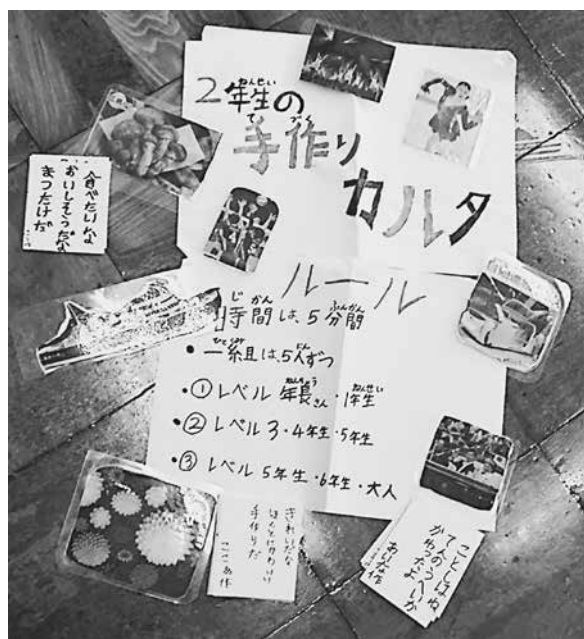 2年生の
手作り
カルタ
ルール
時間は、5分間
•一組は、5人ずつ
•①レベル 年長さん・1年生
•②レベル 3・4年生・5年生
•③レベル 5年生・6年生・大人
食べたいな
おいしそうだな
まつたけだ
きれいだな
ほんとにかわいい
手作りだ
ことしはね
てんのうへいか
がかわったよ